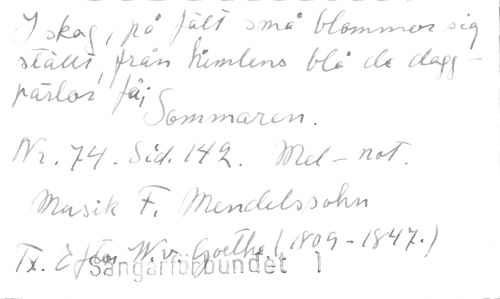 I skog, på fält små blommor sig
ställt, från himlens blå de dagg-
pärlor få;
Sommaren.
Nr. 74. Sid. 142. Mel-not.
Musik F. Mendelssohn
Tx. Efter W. v. Goethe. (1809-1847.)
Sångarförbundet 1